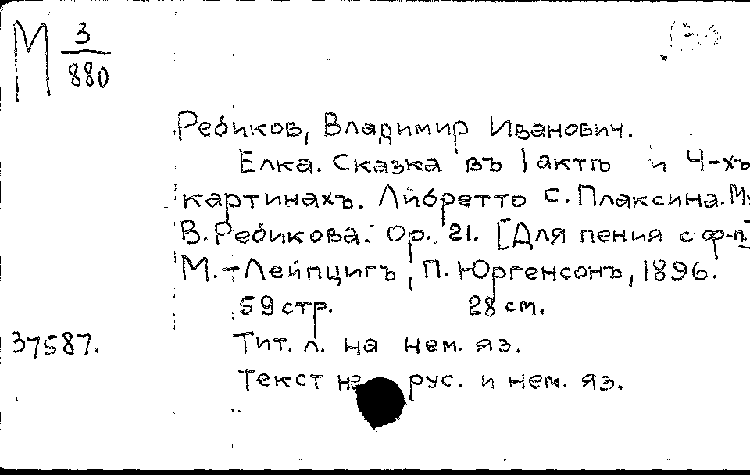 М 3/880
Ребиков, Владимир Иванович.
Елка. Сказка въ 1 актѣ и 4-хъ
картинахъ. Либретто С. Плаксина. Му
В. Ребикова. Op. 21. [Для пения с ф-п]
М.-Лейпцигъ, П. Юргенсонъ, 1896.
59 стр. 28 см.
37587. Тит. л. на нем. яз.
Текст на рус. и нем. яз.